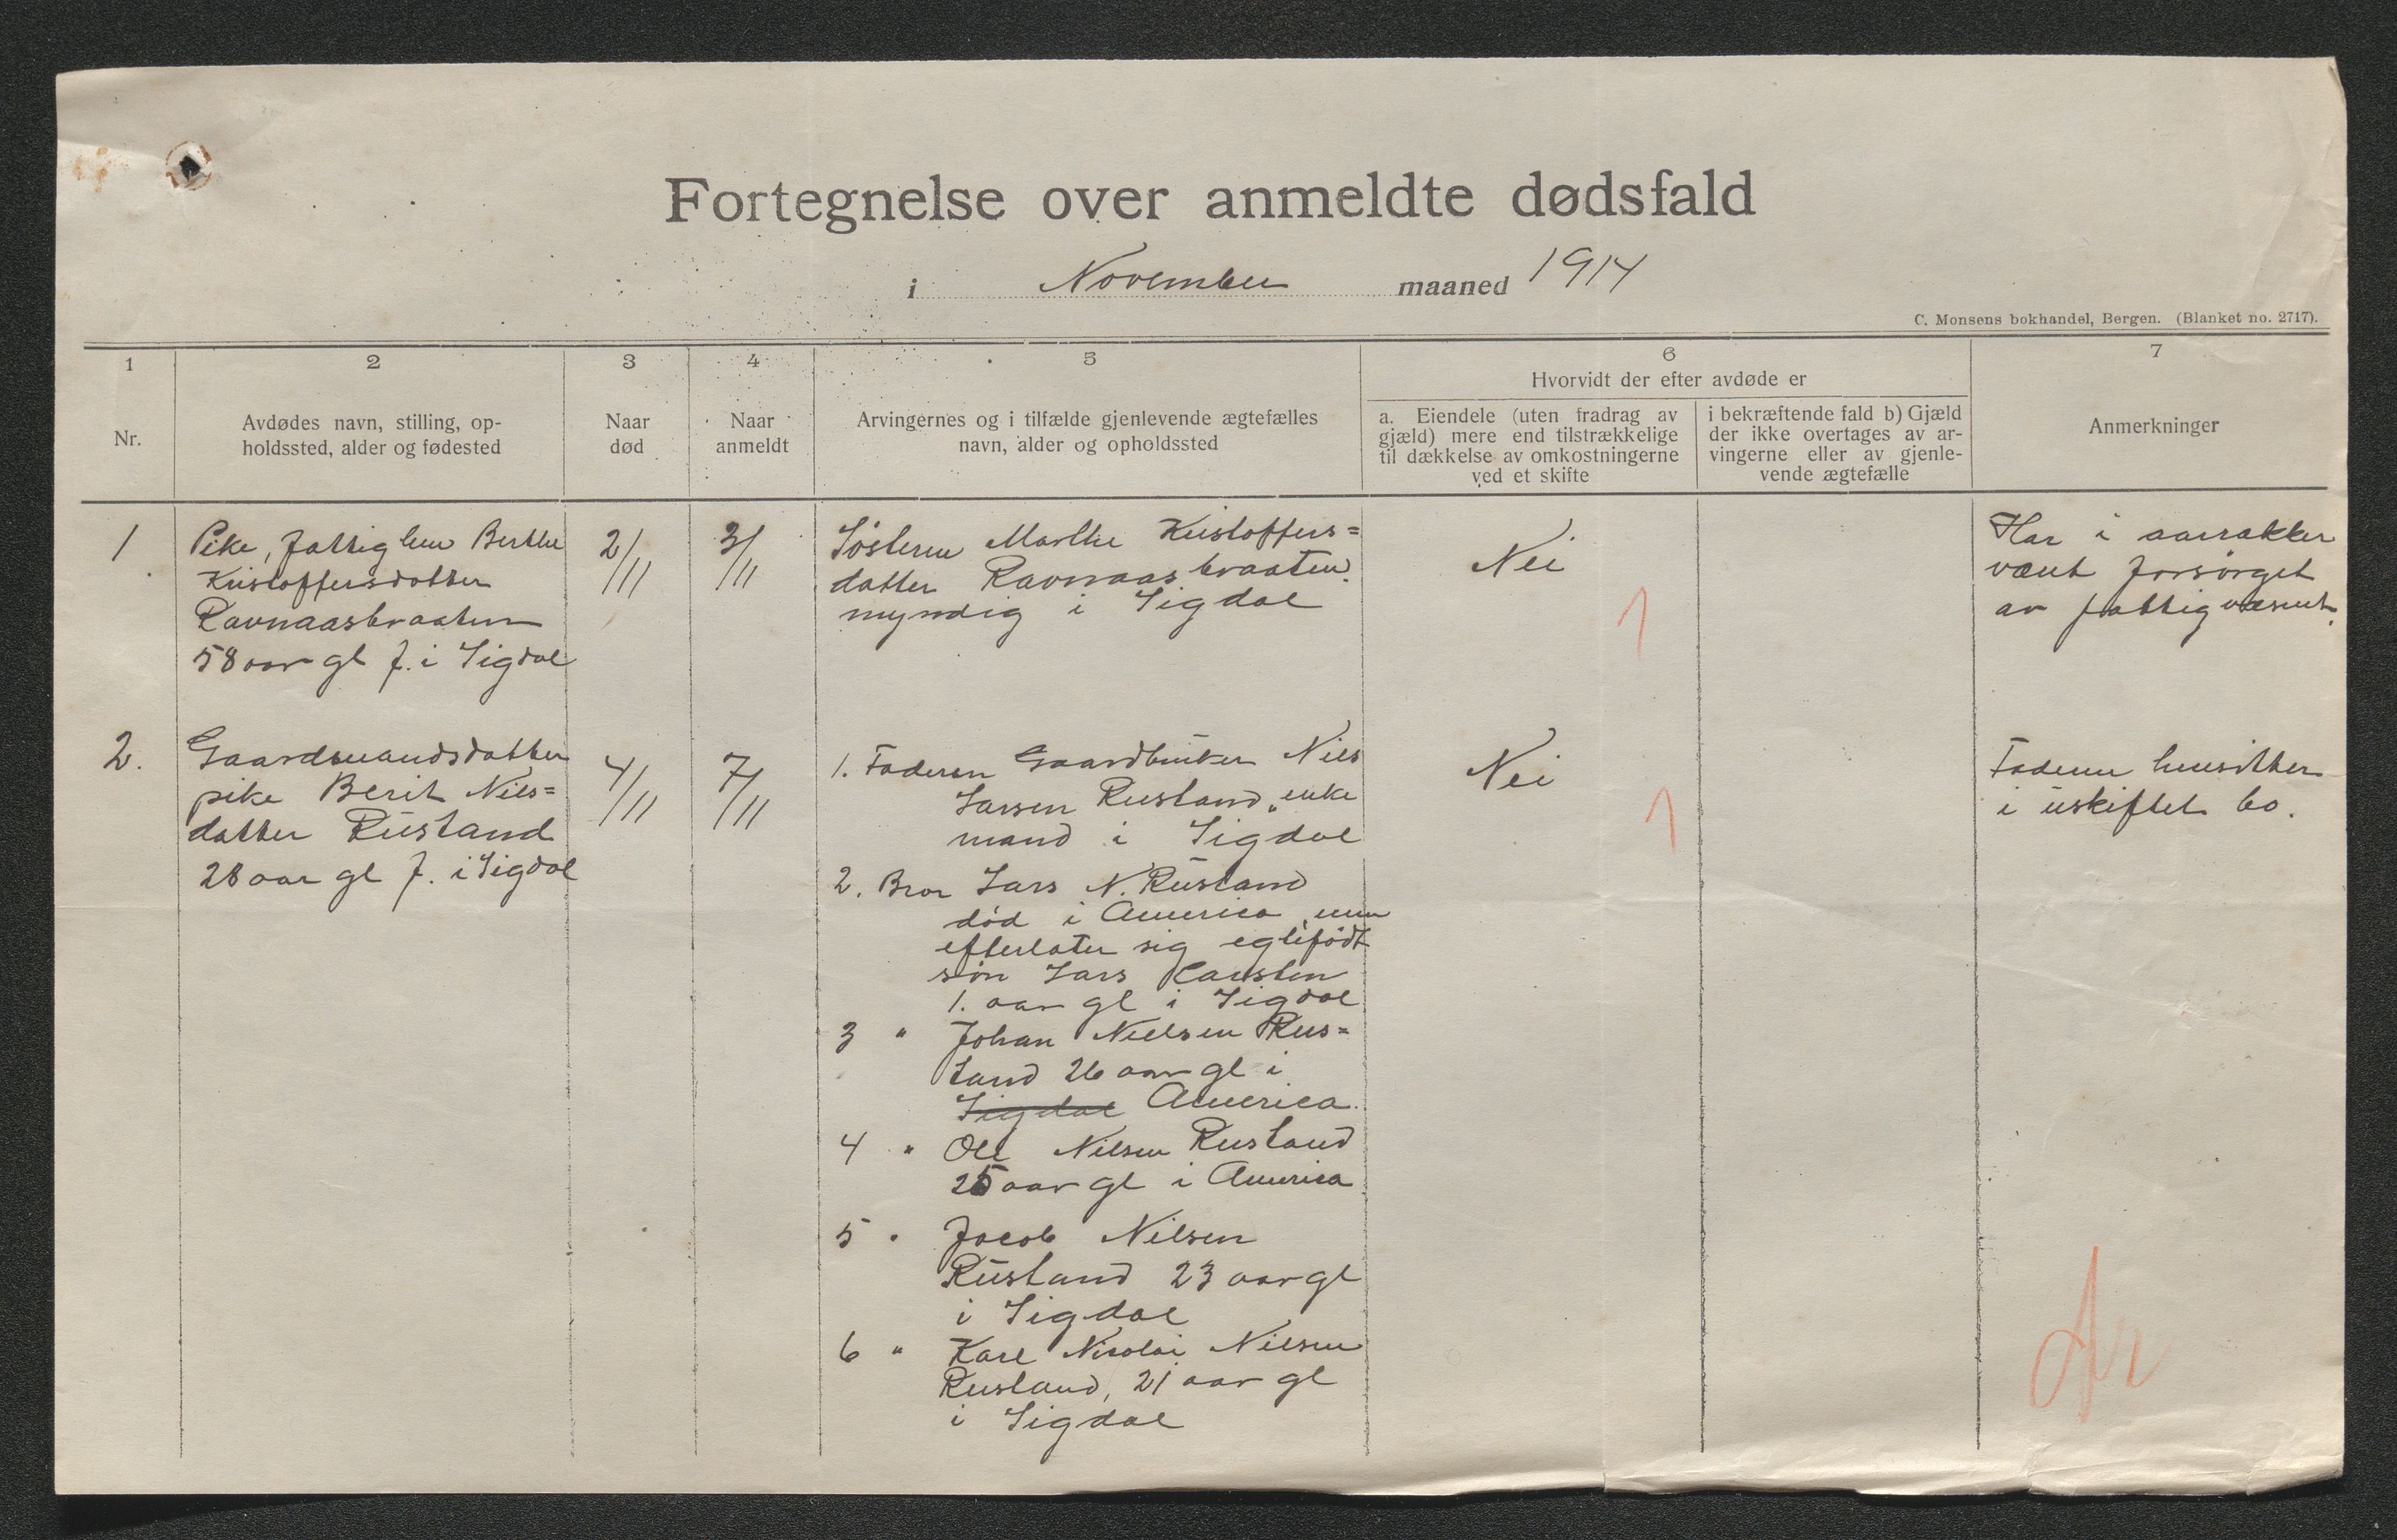 Fortegnelse over anmeldte dødsfald
i November maaned 1914
C. Monsens bokhandel, Bergen. (Blanket no. 2717).
1
Nr.
2
Avdødes navn, stilling, op-
holdssted, alder og fødested
3
Naar
død
4
Naar
anmeldt
5
Arvingernes og i tilfælde gjenlevende ægtefælles
navn, alder og opholdssted
6
Hvorvidt der efter avdøde er
a. Eiendele (uten fradrag av
gjæld) mere end tilstrækkelige
til dækkelse av omkostningerne
ved et skifte
i bekræftende fald b) Gjæld
der ikke overtages av ar-
vingerne eller av gjenle-
vende ægtefælle
7
Anmerkninger
1
Pike, fattiglem Berthe
Kristoffersdatter
Ravnaasbraaten
58 aar gl f. i Sigdal
2/11
3/11
Søsteren Marthe Kristoffers=
datter Ravnaasbraaten
myndig i Sigdal
Nei
1
Har i aarrakker
vært forsørget
av fattigvæsnet.
2.
Gaardmandsdatter
pike Berit Niels=
datter Rustand
28 aar gl f. i Sigdal
4/11
7/11
1. Faderen Gaardbruker Nils
Larsen Rustand, enke
mand i Sigdal
2. Bror Lars N. Rustand
død i America, men
efterlater sig egtefødt
søn Lars Karsten
1. aar gl i Sigdal
3 " Johan Nielsen Rus=
tand 26 aar gl i
Sigdal America.
4 " Ole Nilsen Rustand
25 aar gl i America
5 " Jacob Nilsen
Rustand 23 aar gl
i Sigdal
6 " Karl Nicolai Nilsen
Rustand, 21 aar gl
i Sigdal
Nei
1
Faderen hensitter
i uskiftet bo.